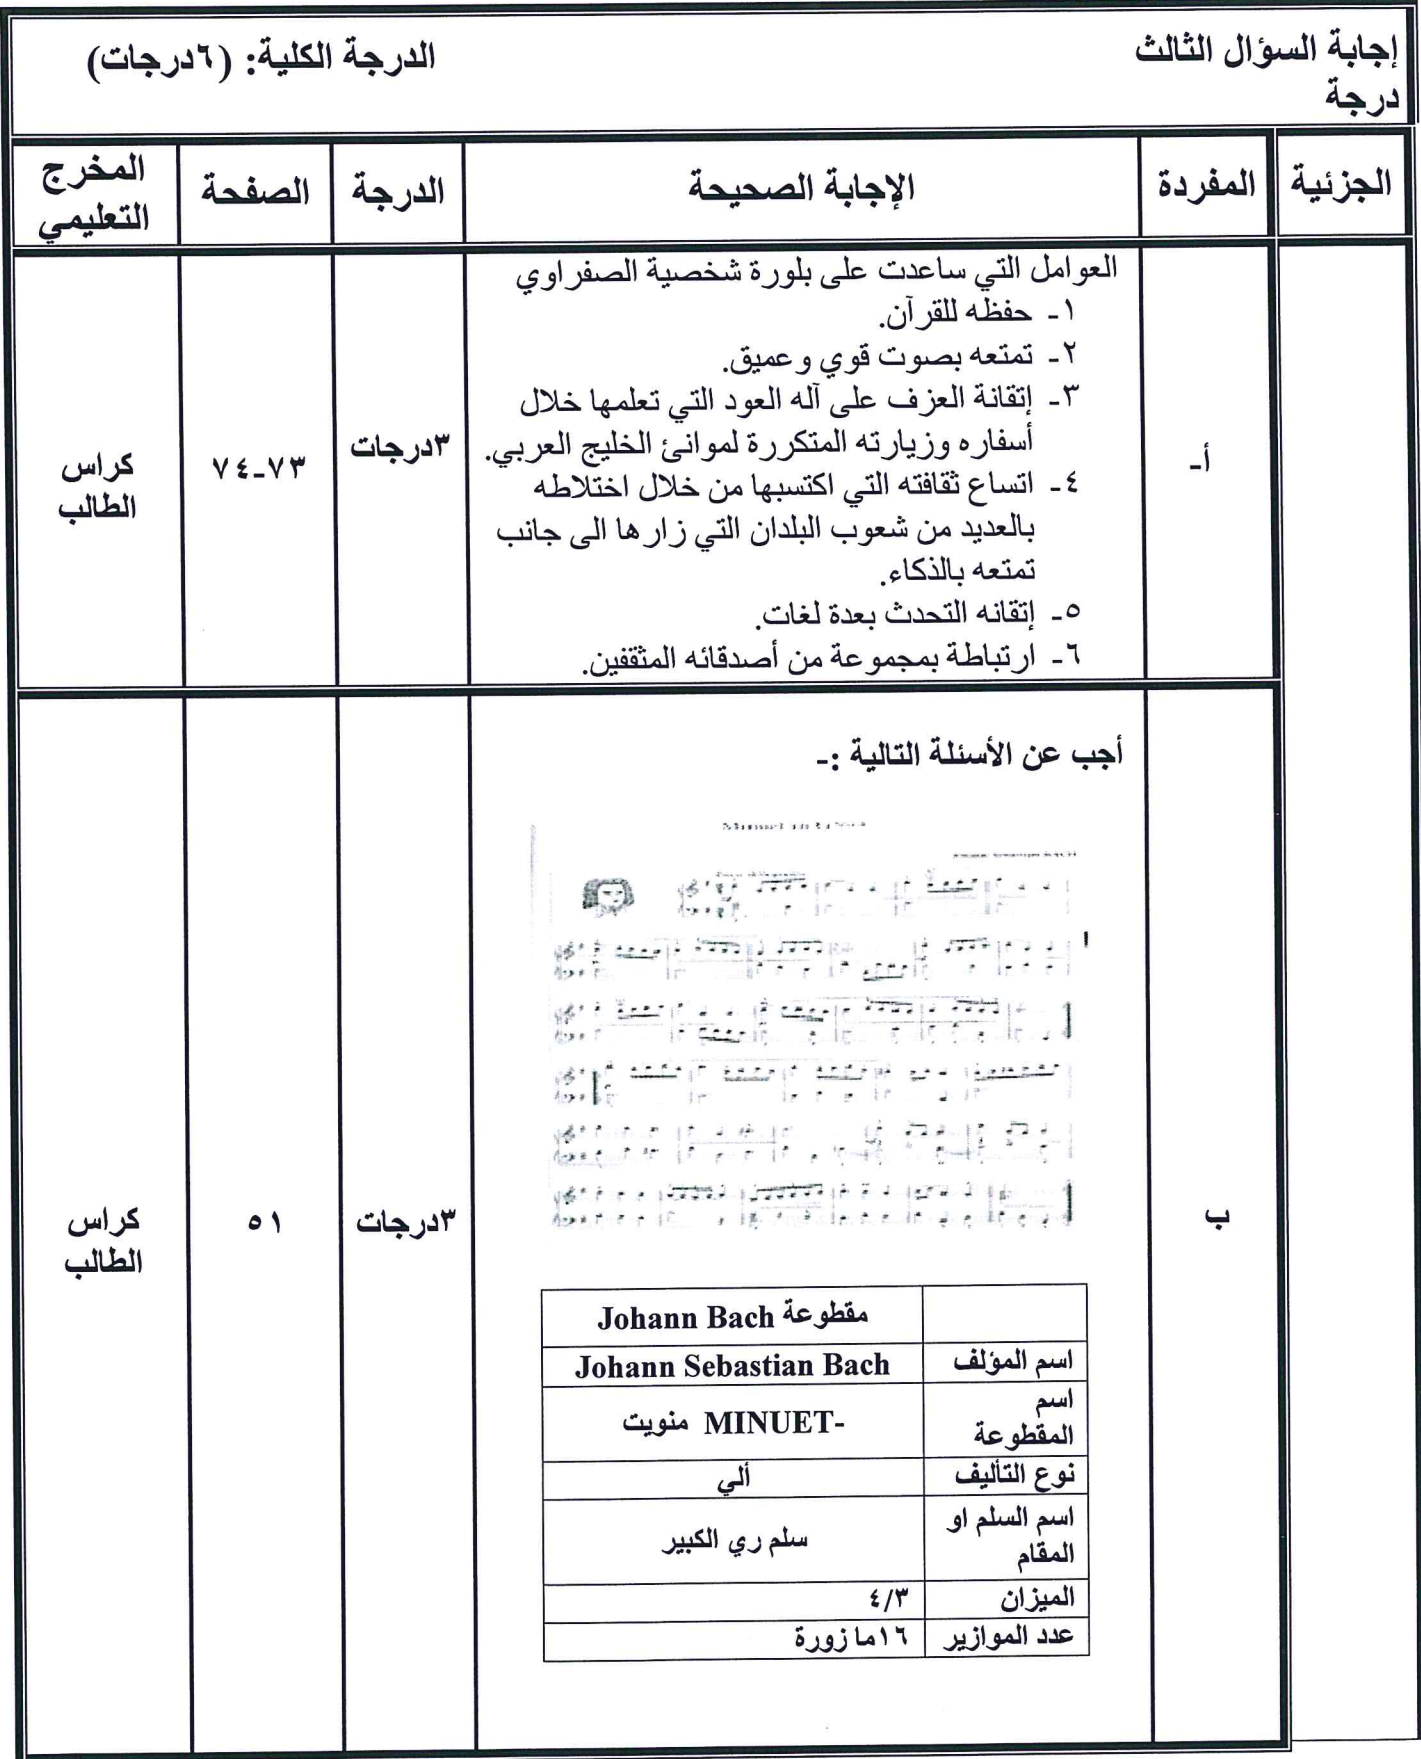 إجابة السؤال الثالث
الدرجة الكلية: (٦درجات)
درجة
الجزئية
المفردة
الإجابة الصحيحة
الدرجة
الصفحة
المخرج
التعليمي
أ-
العوامل التي ساعدت على بلورة شخصية الصفراوي
١- حفظه للقرآن.
٢- تمتعه بصوت قوي وعميق.
٣- إتقانة العزف على آله العود التي تعلمها خلال
أسفاره وزيارته المتكررة لموانئ الخليج العربي.
٤- اتساع ثقافته التي اكتسبها من خلال اختلاطه
بالعديد من شعوب البلدان التي زارها الى جانب
تمتعه بالذكاء.
٥- إتقانه التحدث بعدة لغات.
٦- ارتباطة بمجموعة من أصدقائه المثقفين.
٣درجات
٧٣-٧٤
كراس
الطالب
ب
أجب عن الأسئلة التالية :-
مقطوعة Johann Bach
اسم المؤلف
Johann Sebastian Bach
اسم
المقطوعة
MINUET- منويت
نوع التأليف
ألي
اسم السلم او
المقام
سلم ري الكبير
الميزان
٤/٣
عدد الموازير
١٦مازورة
٣درجات
٥١
كراس
الطالب